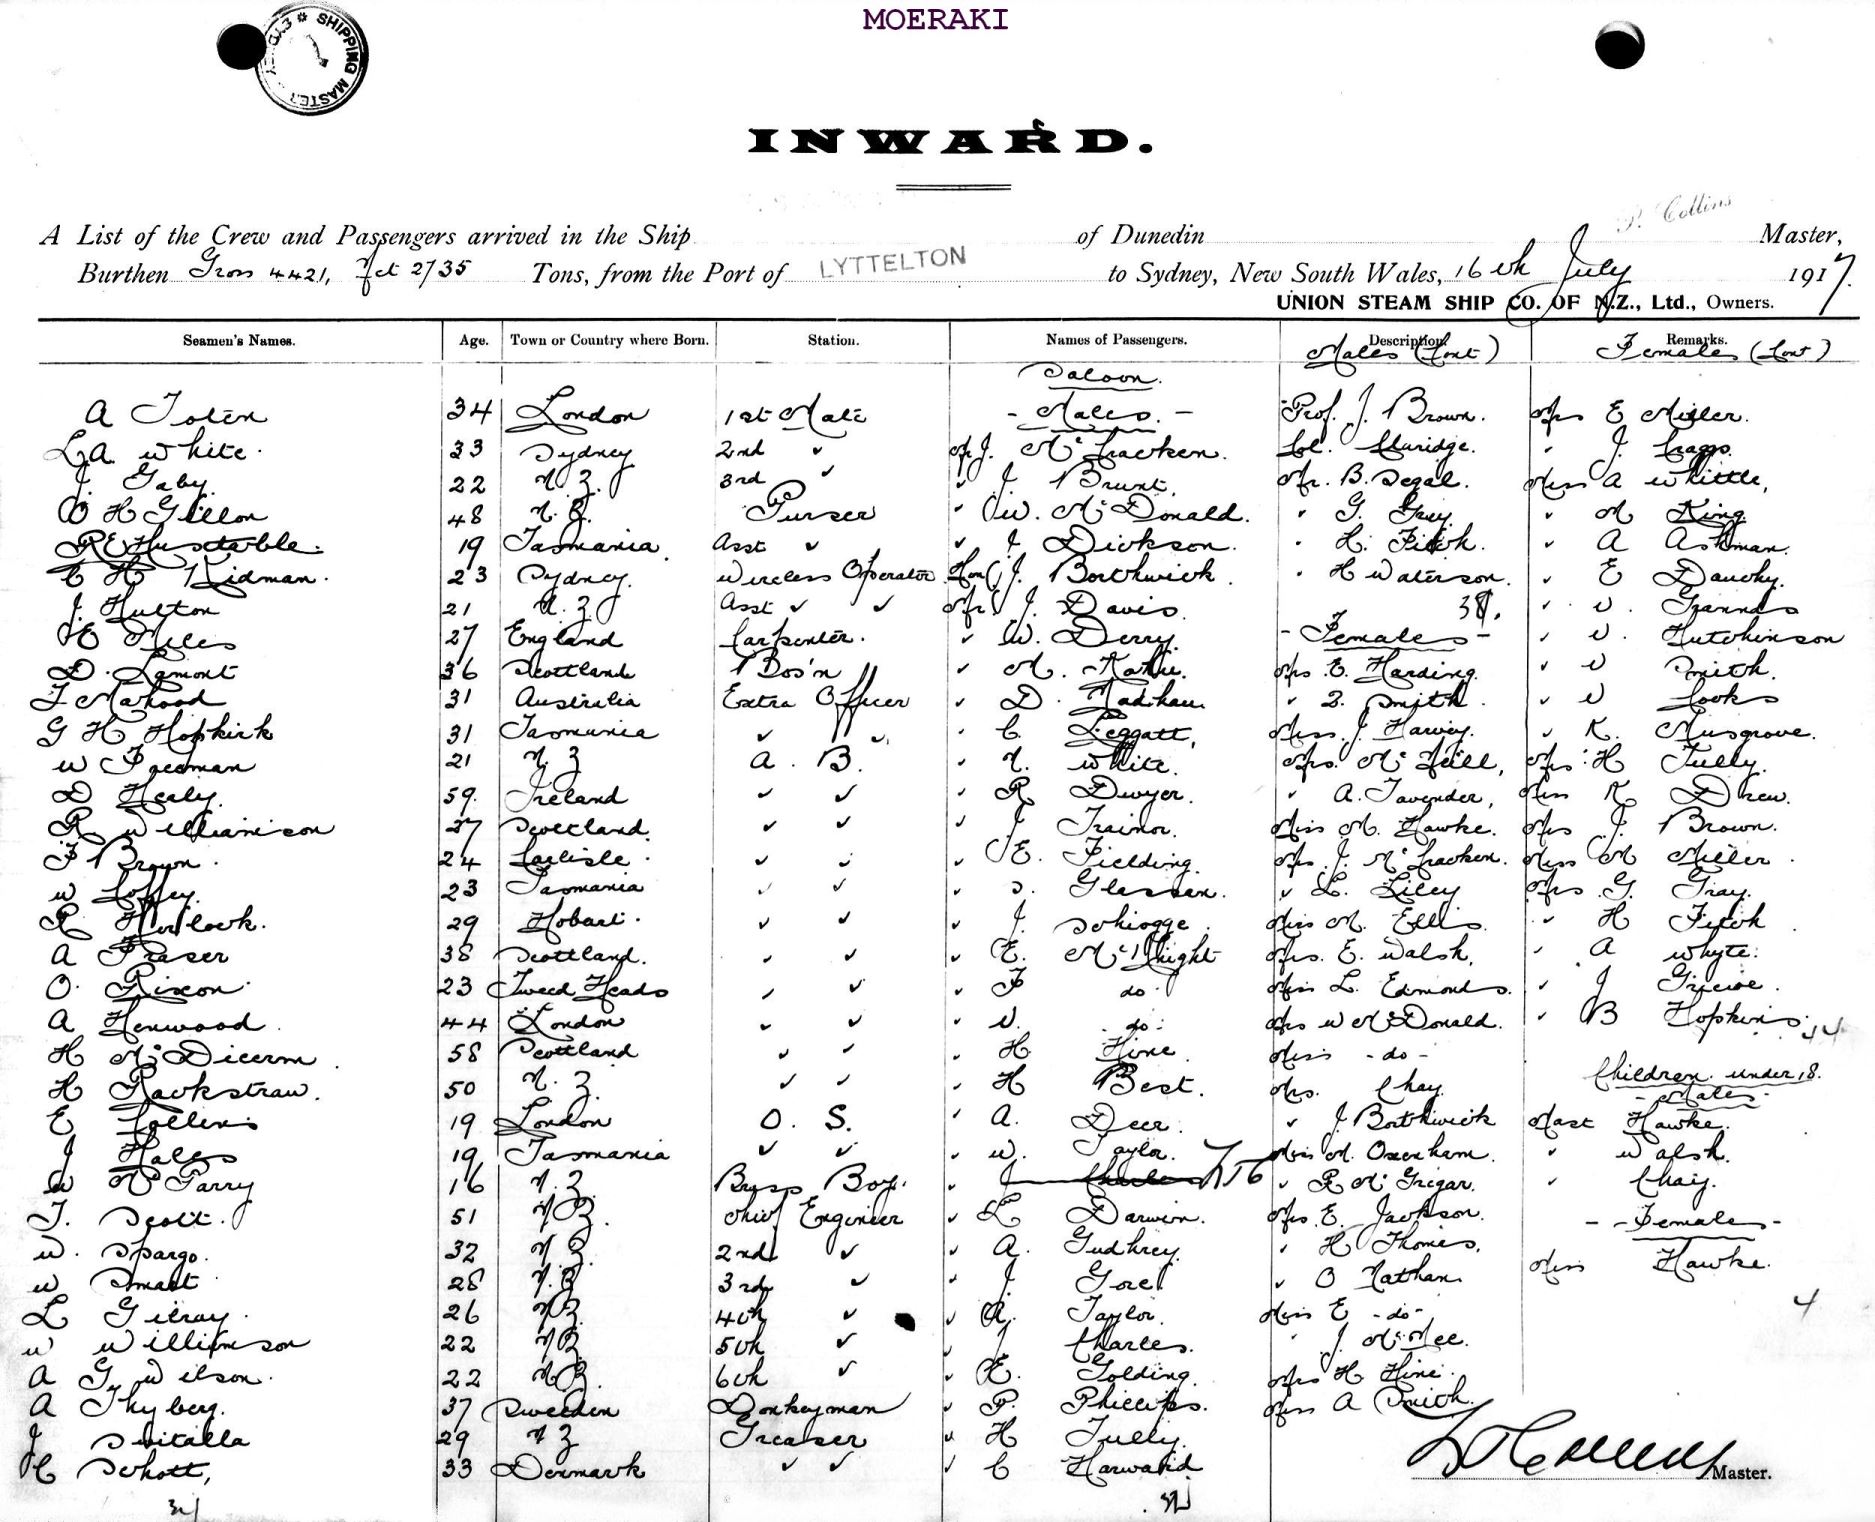 MOERAKI
SHIPPING MASTER
INWARD.
P. Collins
A List of the Crew and Passengers arrived in the Ship of Dunedin Master,
Burthen Gross 4421, Net 2735 Tons, from the Port of LYTTELTON to Sydney, New South Wales, 16th July 1917.
UNION STEAM SHIP CO. OF N.Z., Ltd., Owners.
Seamen's Names. Age. Town or Country where Born. Station. Names of Passengers. Description. Remarks.
Males (Cont) Females (Cont)
Saloon.
A 34 London 1st Mate - Males. - Prof. J. Brown. Mrs E Miller.
L.A. White. 33 Sydney 2nd " Mr J. McCracken. Col. " J. Craggs.
J. Gaby. 22 N.Z. 3rd " " J. Brunt. Mr. B. Segal. Miss A Whittle,
H Gillon 48 N.Z. Purser " W. McDonald. " G. Grey. " M King
R E Huxtable. 19 Tasmania. Asst " " J Dickson. " H. Fitch. " A Ashman.
C H Kidman. 23 Sydney. Wireless Operator Hon. J. Borthwick. " H Waterson. " E
J. Hulton 21 N.Z. Asst " " Mr J. Davis. 38. " W.
27 England Carpenter. " W. Derry. - Females - " W. Hutchinson
D. Lamont 36 Scottland Bos'n " M. Mrs E. Harding. " W Smith.
F Mahood 31 Australia Extra Officer " D. " Smith. " W Cooks
G H Hopkirk 31 Tasmania " " " C. Leggatt, Miss J Harvey. " K. Musgrove.
W Freeman 21 N.Z. A. B. " N. White. Mrs. McNeill, Mrs H Tully.
D Healy. 59. Ireland " " " R Dwyer. " A. Tavender, Miss K Drew.
R Williamson 27 Scottland. " " " J Trainor. Miss M. Hawke. Mrs J. Brown.
F Brown. 24 Carlisle. " " " E. Fielding. Mrs. J. McCracken. Miss M Miller.
W Coffey. 23 Tasmania " " " S. Glassan. " L. Liley Mrs G. Gray.
R Horlock. 29 Hobart. " " " J. Miss M. Ellis. " H Fitch
A Fraser 38 Scottland. " " " E. McKnight Mrs. E. Walsh, " A Whyte.
O. Rixon 23 Tweed Heads " " " F do Miss L. Edmonds. " J
A Henwood. 44 London " " " W. do. Mrs W McDonald. " B Hopkins.
44
H 58 Scottland " " " H Hine. Miss - do -
H Rackstraw. 50 N.Z. " " " H Best. Mrs. Chay. Children under 18.
- Males -
E Collins 19 London O. S. " A. Deer. " J Borthwick Mast Hawke.
J Hales 19 Tasmania " " " W. Taylor. Miss M. Oxenham. " Walsh.
W McGarry 16 N.Z. Brass Boy. " J Charles " R McGregor. " Chay.
T. Scott. 51 N.Z. Chief Engineer " L Darwin. Mrs. E. Jackson. - Females -
W. Spargo. 32 N.Z. 2nd " " A. Gudhrey. " H Thomes. Miss Hawke.
W Smart 28 N.Z. 3rd " " J. Gore. " O Nathan.
L Gilray. 26 N.Z. 4th " " A. Taylor. Miss E - do - 4
W Williamson 22 N.Z. 5th " " J Charles. " J. McMee.
A G. Wilson. 22 N.Z. 6th " " E. Golding. Mrs H Hine.
A Thyberg. 37 Sweeden Donkeyman " P. Phillips. Miss A Smith.
J 29 N.Z. Greaser " H Tully.
C Schott, 33 Denmark " " " C Harward.
Master.